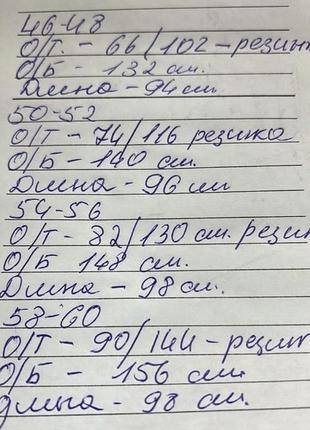 46-48
О/Т - 66/102 - резинк
О/Б - 132 см.
Длина - 94 см
50-52
О/Т - 74/116 резинка
О/Б - 140 см.
Длина - 96 см
54-56
О/Т - 82/130 см. резин
О/Б 148 см.
Длина - 98 см.
58-60
О/Т - 90/144 - резинк
О/Б - 156 см
Длина - 98 см.